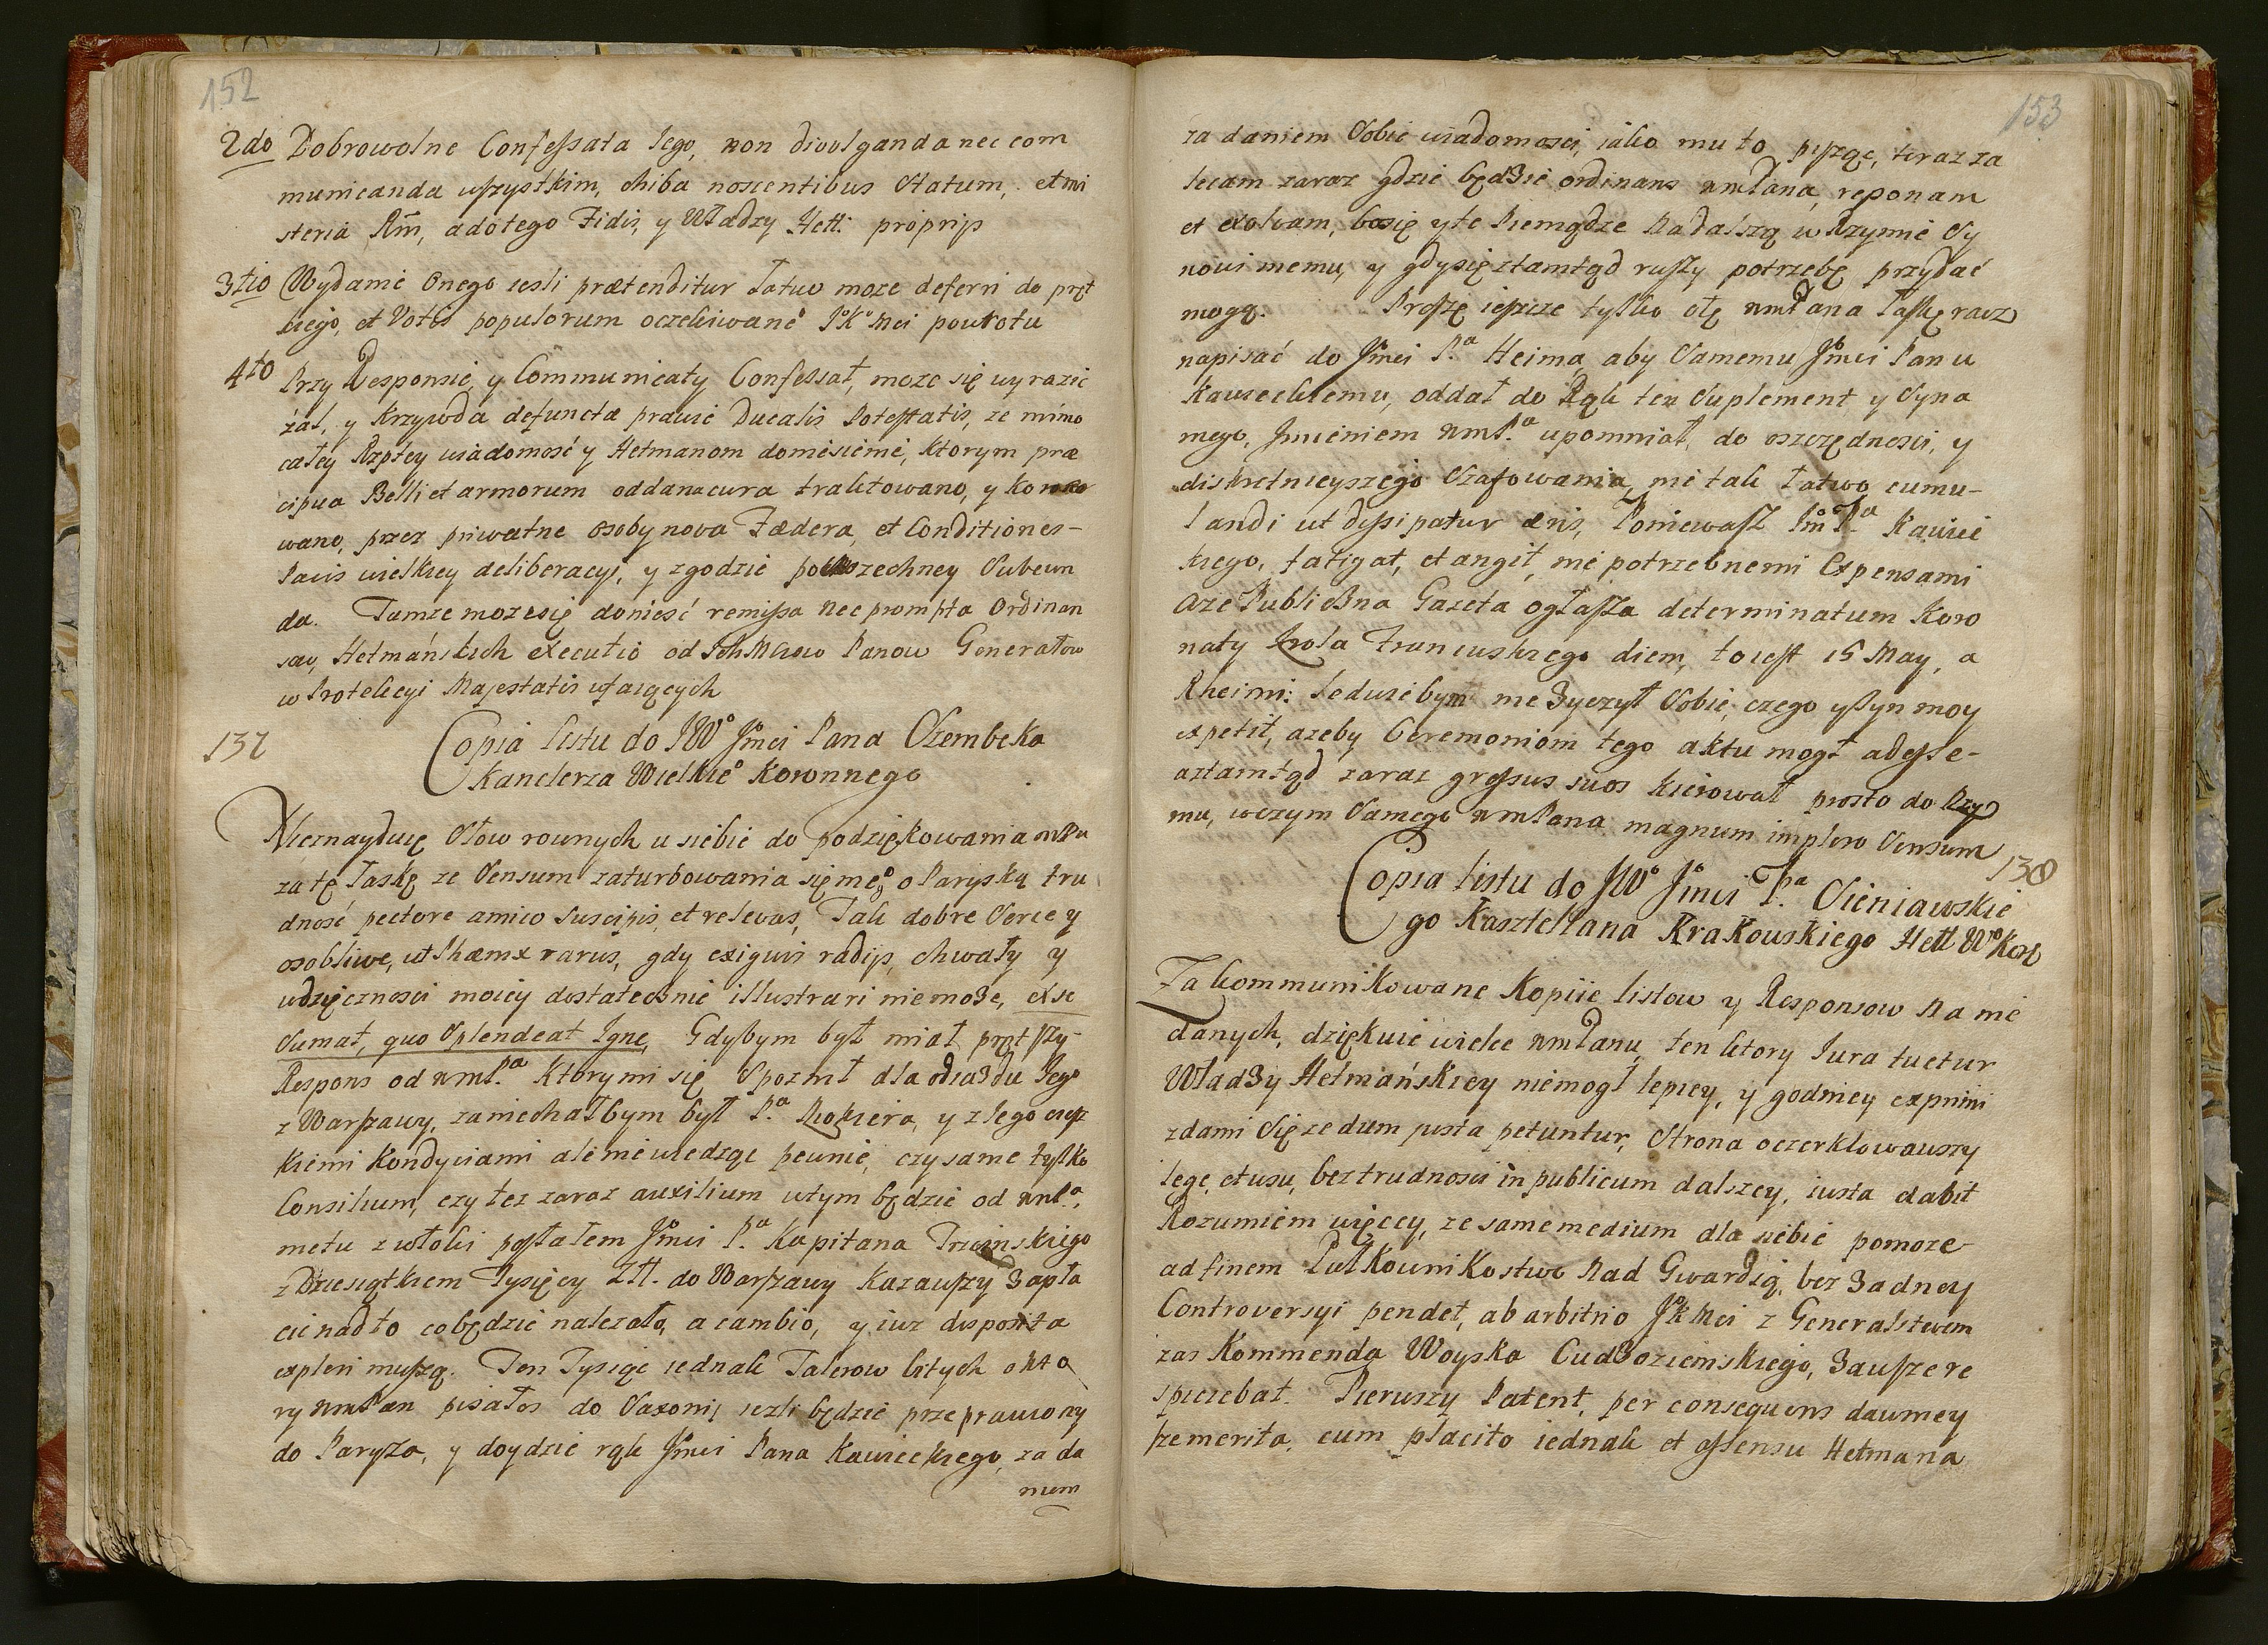 152
2do Dobrowolne Confessata Jego, non divulganda nec com
municanda wszystkim, chiba noscentibus Statum, et mi
steria Rm, a do tego Fidis, y Władzy Hett: proprijs
3tio Wydanie Onego iesli prætenditur Łatwo moze deferri do pręt
kiego, et Votis populorum oczekiwane° JK° Mci powrotu
4to Przy Responsie, y Communicaty Confessat, moze się wyrazic
żal, y Krzywda defunctæ prawie Ducalis Potestatis, ze mimo
całey Rzptey wiadomość y Hetmanom doniesienie, ktorym præ
cipua Belli et armorum oddana cura traktowano, y
wano, przez priwatne osoby nova Fædera, et Conditiones
Pacis wielkiey deliberacyi, y zgodzie powszechney Subeun
da. Tamze moze się donieść remissa nec prompta Ordinan
sow, Hetmańskich executio od Ich Mciow Panow Generałow
w Protekcyi Majestatis ufaiących
137
Copia listu do JW° Jmci Pana Szembeka
Kanclerza Wielkie° Koronnego
Nieznayduię Słow rownych u siebie do podziękowania
za tę Łaskę ze Sensum zaturbowania się me° o Paryską tru
dność pectore amico Suscipis, et relevas, Tak dobre Serce y
osobliwe, ut Phænix rarus, gdy exiguis radijs, chwały y
wdzięcznosci moiey dostatecznie illustrari nie może, ex se
Sumat, quo Splendeat Igne, Gdybym był miał prętszy
Respons od wmP.a ktory mi się Spoznił dla odiazdu Jego
z Warszawy, zaniechałbym był P.a Riokiera, y z Jego cięż
kiemi Kondyciami ale nie wiedząc pewnie, czy same tylko
Consilium, czy tez zaraz auxilium w tym będzie od wmP.a,
metu zwłoki posłałem Jmci P.a Kapitana Trzcinskiego
z Dziesiątkiem Tysięcy Zlł. do Warszawy kazawszy Zapła
cic nadto co będzie nalezało, a cambio, y iuz disposita
expleri muszą. Ten Tysiąc iednak Talerow bitych kto
ry wmPan pisałes do Saxonij iezli będzie przeprawiony
do Paryża, y doydzie rąk Jmci Pana Kawieckiego, za da
niem
153
za daniem Sobie wiadomosci, iako mu to piszę, teraz za
lecam zaraz gdzie będzie ordinans wmPana, reponam
et exolvam, bo się y te Pieniądze na dalszą w Rzymie Sy
nowi memu, y gdy się ztamtąd ruszy potrzebę przydać
mogą. Proszę ieszcze tylko o tę wmPana Łaskę racz
napisać do Jmci P.a Heima, aby Samemu Jmci Panu
Kawieckiemu, oddał do Rąk ten Suplement y Syna
mego, Imieniem wmP.a upomniał, do oszczędnosci, y
diskretnieyszego Szafowania, nie tak łatwo cumu-
landi ut dissipatur æris, Poniewasz Jm P.a Kawiec
kiego, fatigat, et angit, nie potrzebnemi Expensami
Aze Publiczna Gazeta ogłasza determinatum Koro
naty Krola Francuskiego diem, to iest 15 May, a
Rheims: Ledwiebym nie Zyczył Sobie, czego y Syn moy
expetit, azeby Ceremoniom tego aktu mogł adesse-
a ztamtąd zaraz gressus suos kierował prosto do Rzy
mu, w czym Samego wmPana magnum imploro Sensum
138
Copia listu do JW° Jmci P.a Sieniawskie
go Kasztellana Krakowskiego Hett W° Kor
Za kommunikowane Kopiie listow y Responsow na nie
danych, dziękuie wielce wmPanu, ten ktory Jura tuetur
Władzy Hetmańskiey niemogł lepiey, y godniey exprimi
zda mi Się ze dum justa petuntur, Strona
lege, et usu, bez trudnosci in publicum dalszey, iusta dabit
Rozumiem więcey, ze same medium dla siebie pomoze
ad finem Pułkownikostwo nad Gwardią, bez Zadney
Controversyi pendet, ab arbitrio JK Mci z Generalstwem
zas Kommenda Woyska Cudzoziemskiego, Zawsze re
spiciebat. Pierwszy Patent, per consequens dawniey
ze merita, cum placito iednak et assensu Hetmana